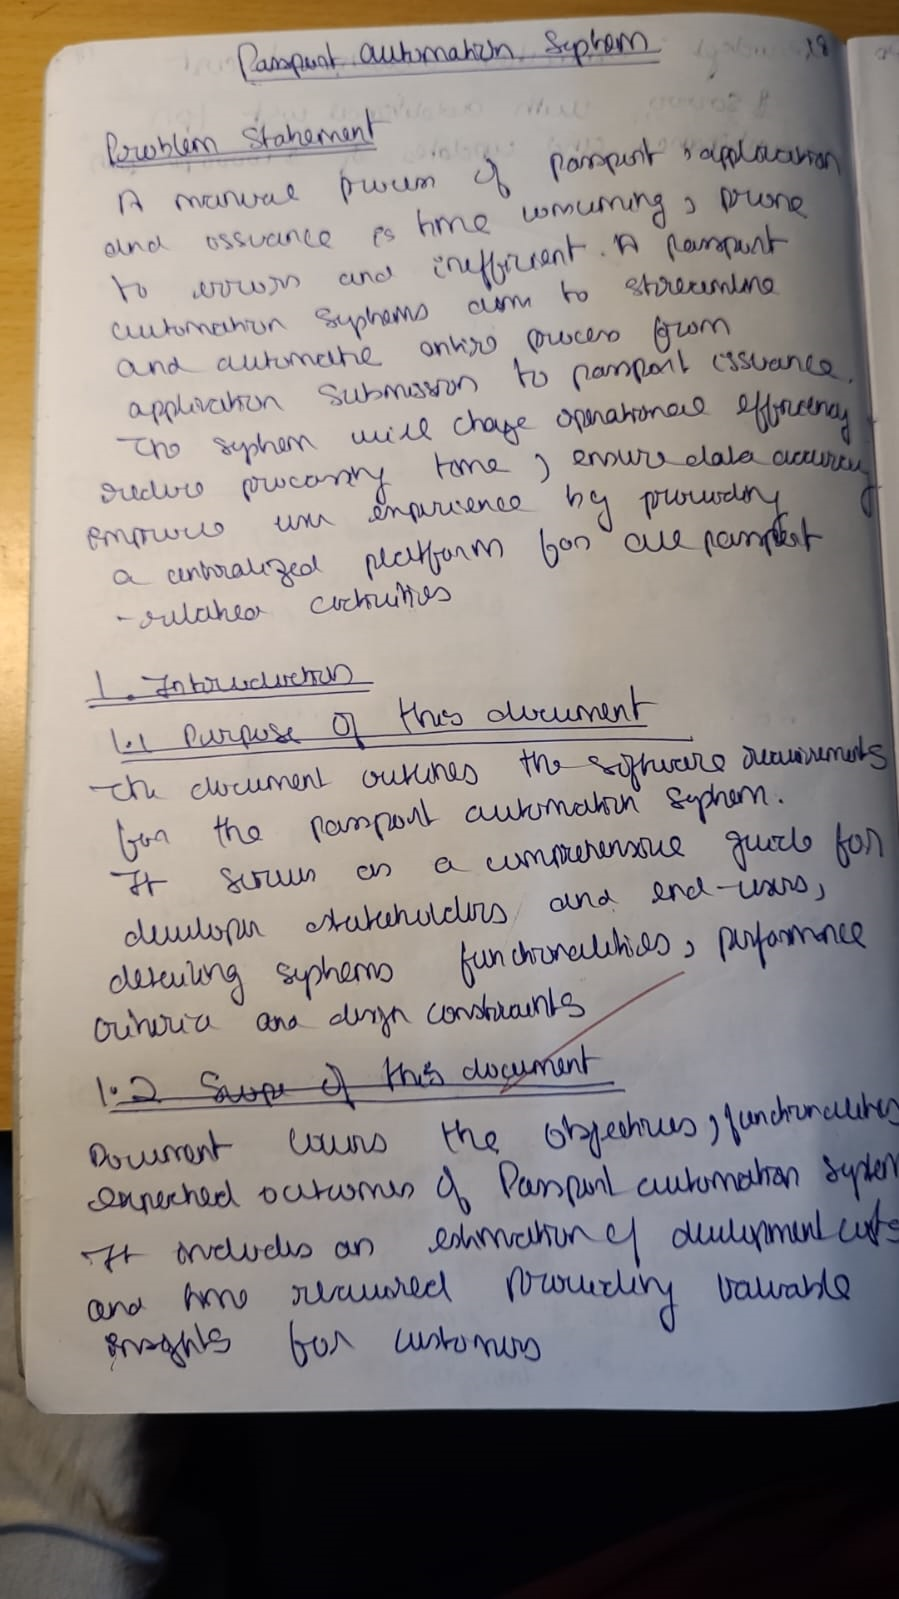 Passport automation System
18
Problem Statement
A manual process of passport application
and issuance is time consuming, prone
to errors and inefficient. A passport
automation systems aim to streamline
and automate entire process from
application submission to passport issuance.
The system will change operational efficiency
reduce processing time, ensure data accuracy
improve user experience by providing
a centralized platform for all passport
-related activities
1. Introduction
1.1 Purpose of this document
The document outlines the software requirements
for the passport automation system.
It serves as a comprehensive guide for
developer stakeholders and end-users,
detailing systems functionalities, performance
criteria and design constraints
1.2 Scope of this document
Document covers the objectives, functionalities
expected outcomes of Passport automation system
It includes an estimation of development costs
and time required providing valuable
insights for customers